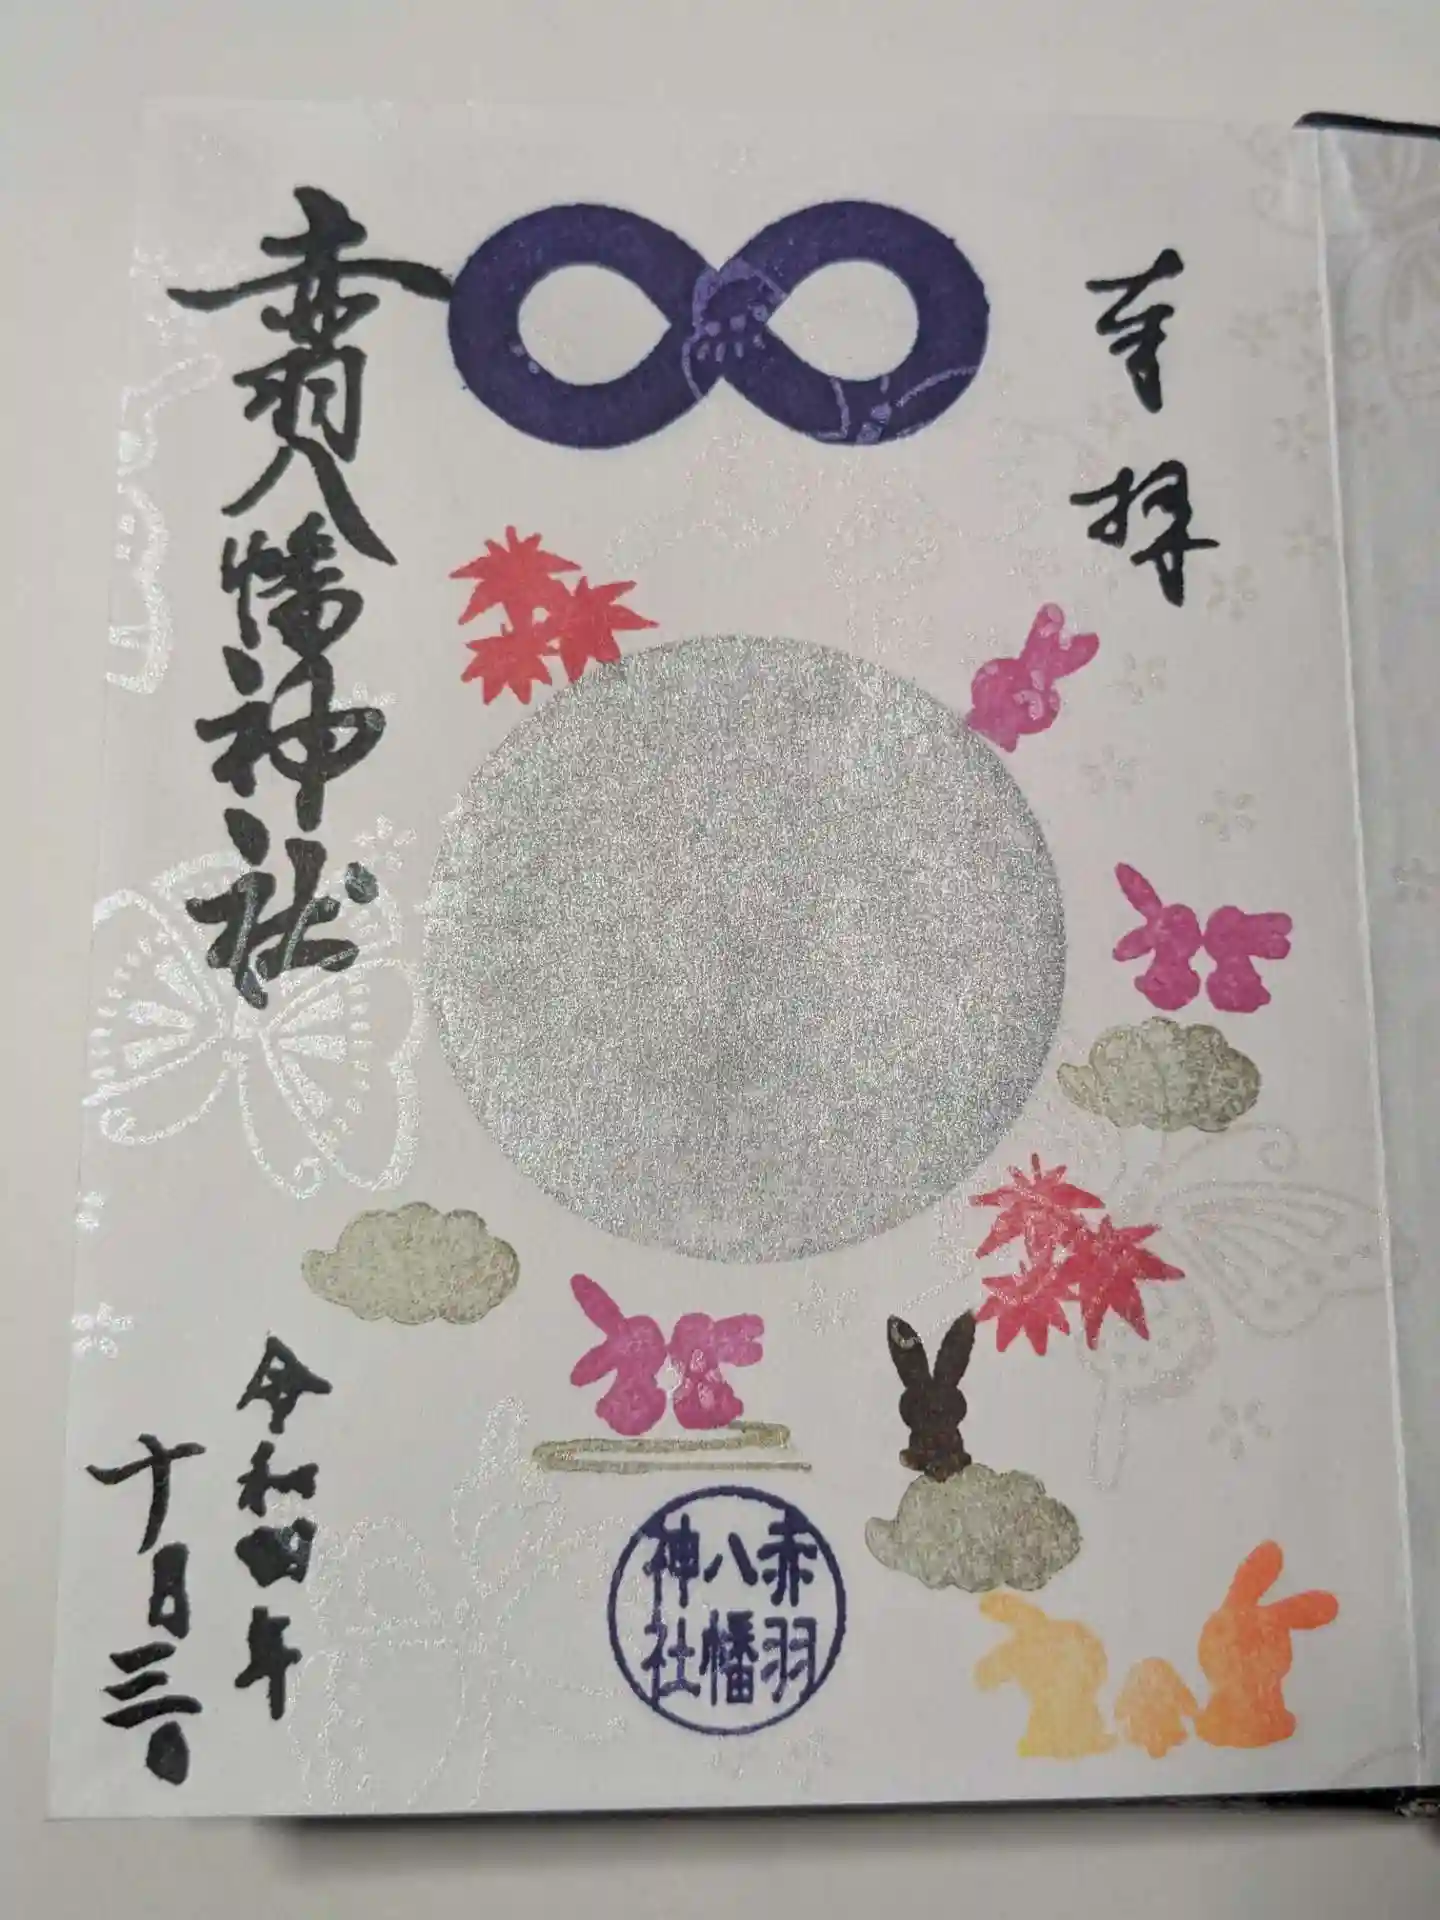 奉拝
赤羽八幡神社
令和四年
十月三日
赤羽
八幡
神社